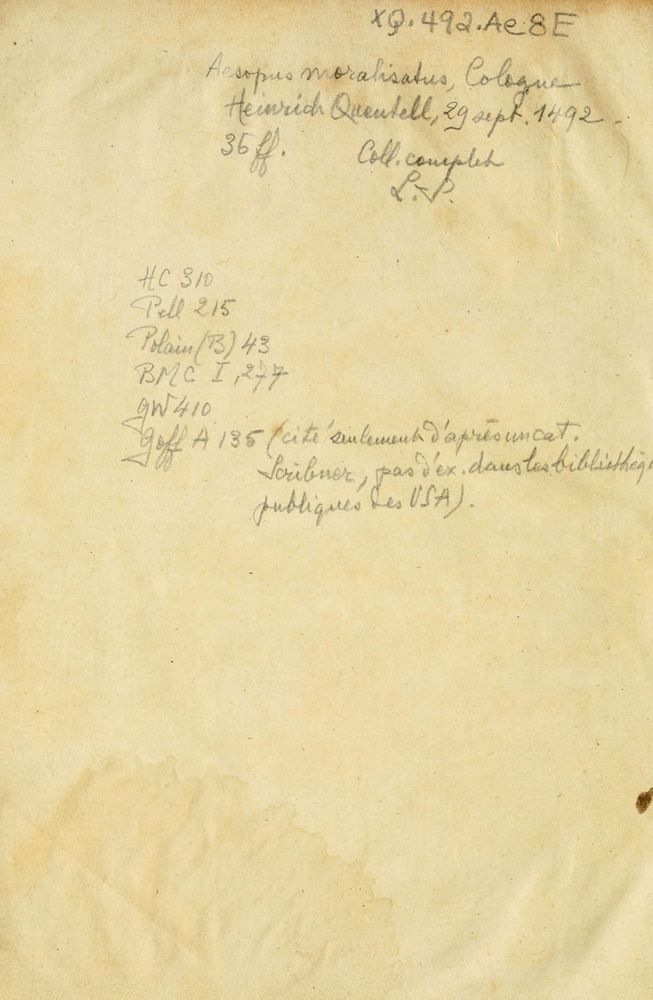 XQ. 492. Ae8E
Aesopus moralisatus, Cologne
Heinrich Quentell, 29 sept. 1492
36 ff. Coll. complet
L.-P.
HC 310
Pell 215
Polain (B) 43
BMC I, 277
GW 410
Goff A 135 (cité seulement d'après un cat.
Scribner, pas d'ex. dans les bibliothèq
publiques des USA).